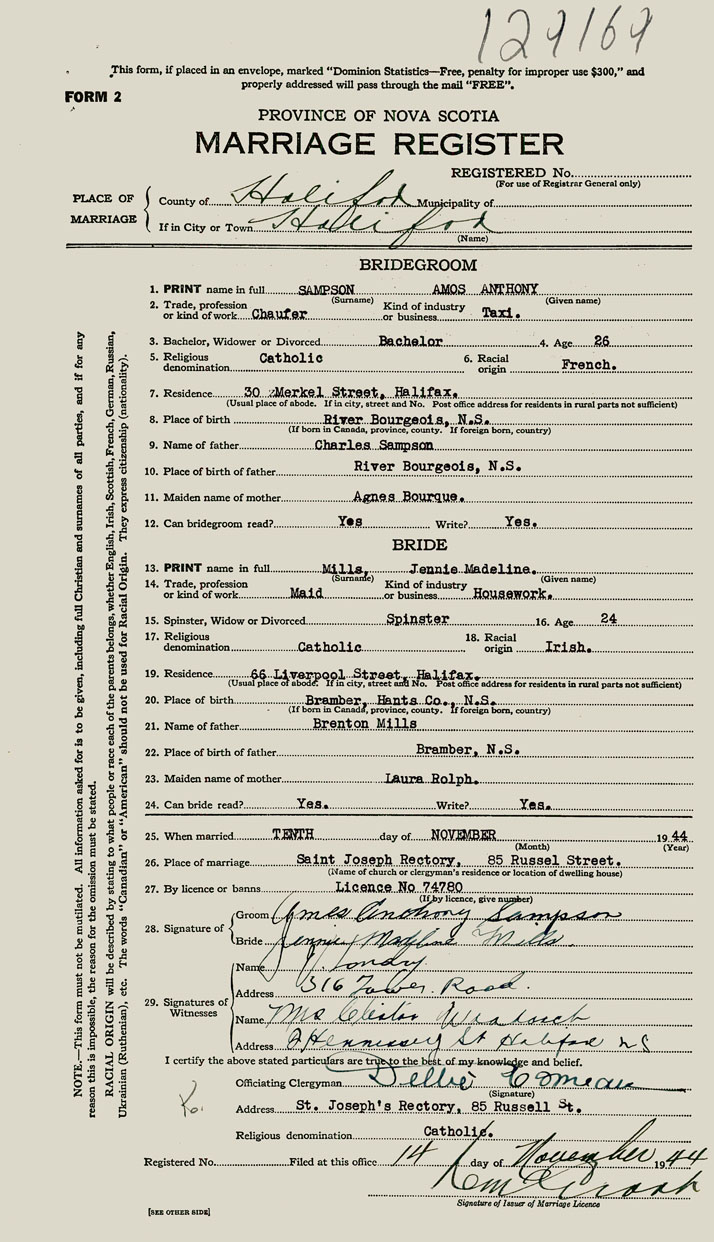 129169
This form, if placed in an envelope, marked "Dominion Statistics—Free, penalty for improper use $300," and
properly addressed will pass through the mail "FREE".
FORM 2
PROVINCE OF NOVA SCOTIA
MARRIAGE REGISTER
REGISTERED No.
(For use of Registrar General only)
PLACE OF MARRIAGE
County of Halifax Municipality of
If in City or Town Halifax
(Name)
BRIDEGROOM
1. PRINT name in full SAMPSON AMOS ANTHONY
(Surname) (Given name)
2. Trade, profession or kind of work Chaufer Kind of industry or business Taxi.
3. Bachelor, Widower or Divorced Bachelor 4. Age 26
5. Religious denomination Catholic 6. Racial origin French.
7. Residence 30 Merkel Street, Halifax.
(Usual place of abode. If in city, street and No. Post office address for residents in rural parts not sufficient)
8. Place of birth River Bourgeois, N.S.
(If born in Canada, province, county. If foreign born, country)
9. Name of father Charles Sampson
10. Place of birth of father River Bourgeois, N.S.
11. Maiden name of mother Agnes Bourque.
12. Can bridegroom read? Yes Write? Yes.
BRIDE
13. PRINT name in full Mills, Jennie Madeline.
(Surname) (Given name)
14. Trade, profession or kind of work Maid Kind of industry or business Housework.
15. Spinster, Widow or Divorced Spinster 16. Age 24
17. Religious denomination Catholic 18. Racial origin Irish.
19. Residence 66 Liverpool Street, Halifax.
(Usual place of abode. If in city, street and No. Post office address for residents in rural parts not sufficient)
20. Place of birth Bramber, Hants Co., N.S.
(If born in Canada, province, county. If foreign born, country)
21. Name of father Brenton Mills
22. Place of birth of father Bramber, N.S.
23. Maiden name of mother Laura Rolph.
24. Can bride read? Yes. Write? Yes.
25. When married TENTH day of NOVEMBER 1944
(Month) (Year)
26. Place of marriage Saint Joseph Rectory, 85 Russel Street.
(Name of church or clergyman's residence or location of dwelling house)
27. By licence or banns Licence No 74780
(If by licence, give number)
28. Signature of
Groom Amos Anthony Sampson
Bride Jennie Madeline Mills.
29. Signatures of Witnesses
Name
Address 316 Tower Road.
Name Mrs
Address 2 Hennessey St Halifax NS
I certify the above stated particulars are true to the best of my knowledge and belief.
Officiating Clergyman Dellie Comeau
(Signature)
Address St. Joseph's Rectory, 85 Russell St.
Religious denomination Catholic.
Registered No. Filed at this office 14 day of November 1944
Signature of Issuer of Marriage Licence
[SEE OTHER SIDE]
NOTE.—This form must not be mutilated. All information asked for is to be given, including full Christian and surnames of all parties, and if for any
reason this is impossible, the reason for the omission must be stated.
RACIAL ORIGIN will be described by stating to what people or race each of the parents belongs, whether English, Irish, Scottish, French, German, Russian,
Ukrainian (Ruthenian), etc. The words "Canadian" or "American" should not be used for Racial Origin. They express citizenship (nationality).